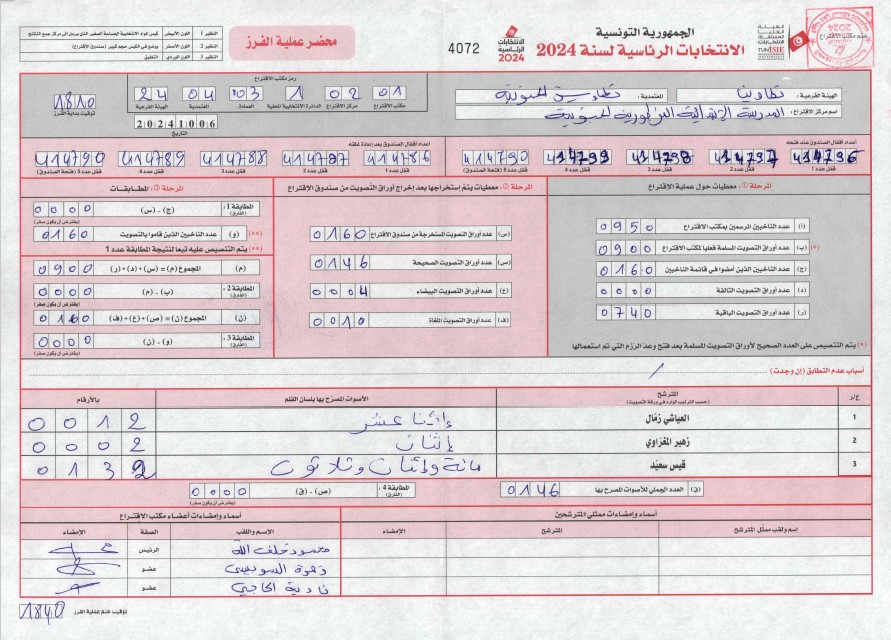 الجمهورية التونسية
الانتخابات الرئاسية لسنة 2024
4072
الانتخابات الرئاسية 2024
محضر عملية الفرز
النظير 1 اللون الأبيض
النظير 2 اللون الأصفر
النظير 3 اللون الوردي التعليق
الهيئة الفرعية: تطاوين المعتمدية: تطاوين الجنوبية
اسم مركز الاقتراع: المدرسة الابتدائية
رمز مكتب الاقتراع
24 04 03 1 02 01
الهيئة الفرعية المعتمدية العمادة الدائرة الانتخابية المحلية مركز الاقتراع مكتب الاقتراع
1810
توقيت بداية الفرز
20241006
التاريخ
أعداد أقفال الصندوق عند فتحه
414796 414797 414798 414799 414790
قفل عدد 1 قفل عدد 2 قفل عدد 3 قفل عدد 4 قفل عدد 5 (فتحة الصندوق)
أعداد أقفال الصندوق بعد إعادة غلقه
414786 414787 414788 414789 414790
قفل عدد 1 قفل عدد 2 قفل عدد 3 قفل عدد 4 قفل عدد 5 (فتحة الصندوق)
المرحلة ①: معطيات حول عملية الاقتراع
(أ) عدد الناخبين المرسمين بمكتب الاقتراع 0950
(*) (ب) عدد أوراق التصويت المسلمة فعليا لمكتب الاقتراع 0900
(ج) عدد الناخبين الذين أمضوا في قائمة الناخبين 0160
(د) عدد أوراق التصويت التالفة 0000
(ر) عدد أوراق التصويت الباقية 0740
(*) يتم التنصيص على العدد الصحيح لأوراق التصويت المسلمة بعد فتح وعد الرزم التي تم استعمالها
المرحلة ②: معطيات يتم إستخراجها بعد إخراج أوراق التصويت من صندوق الاقتراع
(س) عدد أوراق التصويت المستخرجة من صندوق الاقتراع 0160
(ص) عدد أوراق التصويت الصحيحة 0146
(ع) عدد أوراق التصويت البيضاء 0004
(ف) عدد أوراق التصويت الملغاة 0010
المرحلة ③: المطابقات
المطابقة 1: (الفارق) (ج) - (س) 0000
(يفترض أن يكون صفر)
(**) (و) عدد الناخبين الذين قاموا بالتصويت 0160
(**) يتم التنصيص عليه تبعا لنتيجة المطابقة عدد 1
(م) المجموع (م) = (س) + (د) + (ر) 0900
المطابقة 2: (الفارق) (ب) - (م) 0000
(يفترض أن يكون صفر)
(ن) المجموع (ن) = (ص) + (ع) + (ف) 0160
المطابقة 3: (الفارق) (و) - (ن) 0000
(يفترض أن يكون صفر)
أسباب عدم التطابق (إن وجدت) /
ع/ر المترشح الأصوات المصرح بها بلسان القلم بالأرقام
(حسب الترتيب الوارد في ورقة التصويت)
1 العياشي زمّال إثنا عشر 0012
2 زهير المغزاوي إثنان 0002
3 قيس سعيّد مائة وإثنان وثلاثون 0132
(ق) العدد الجملي للأصوات المصرح بها 0146
المطابقة 4: (الفارق) (ص) - (ق) 0000
(يفترض أن يكون صفر)
أسماء وإمضاءات ممثلي المترشحين
إسم ولقب ممثل المترشح المترشح الإمضاء
أسماء وإمضاءات أعضاء مكتب الاقتراع
الإسم واللقب الصفة الإمضاء
محمود خلف الله الرئيس
زهرة السويسي عضو
نادية الحاجي عضو
توقيت ختم عملية الفرز 1840